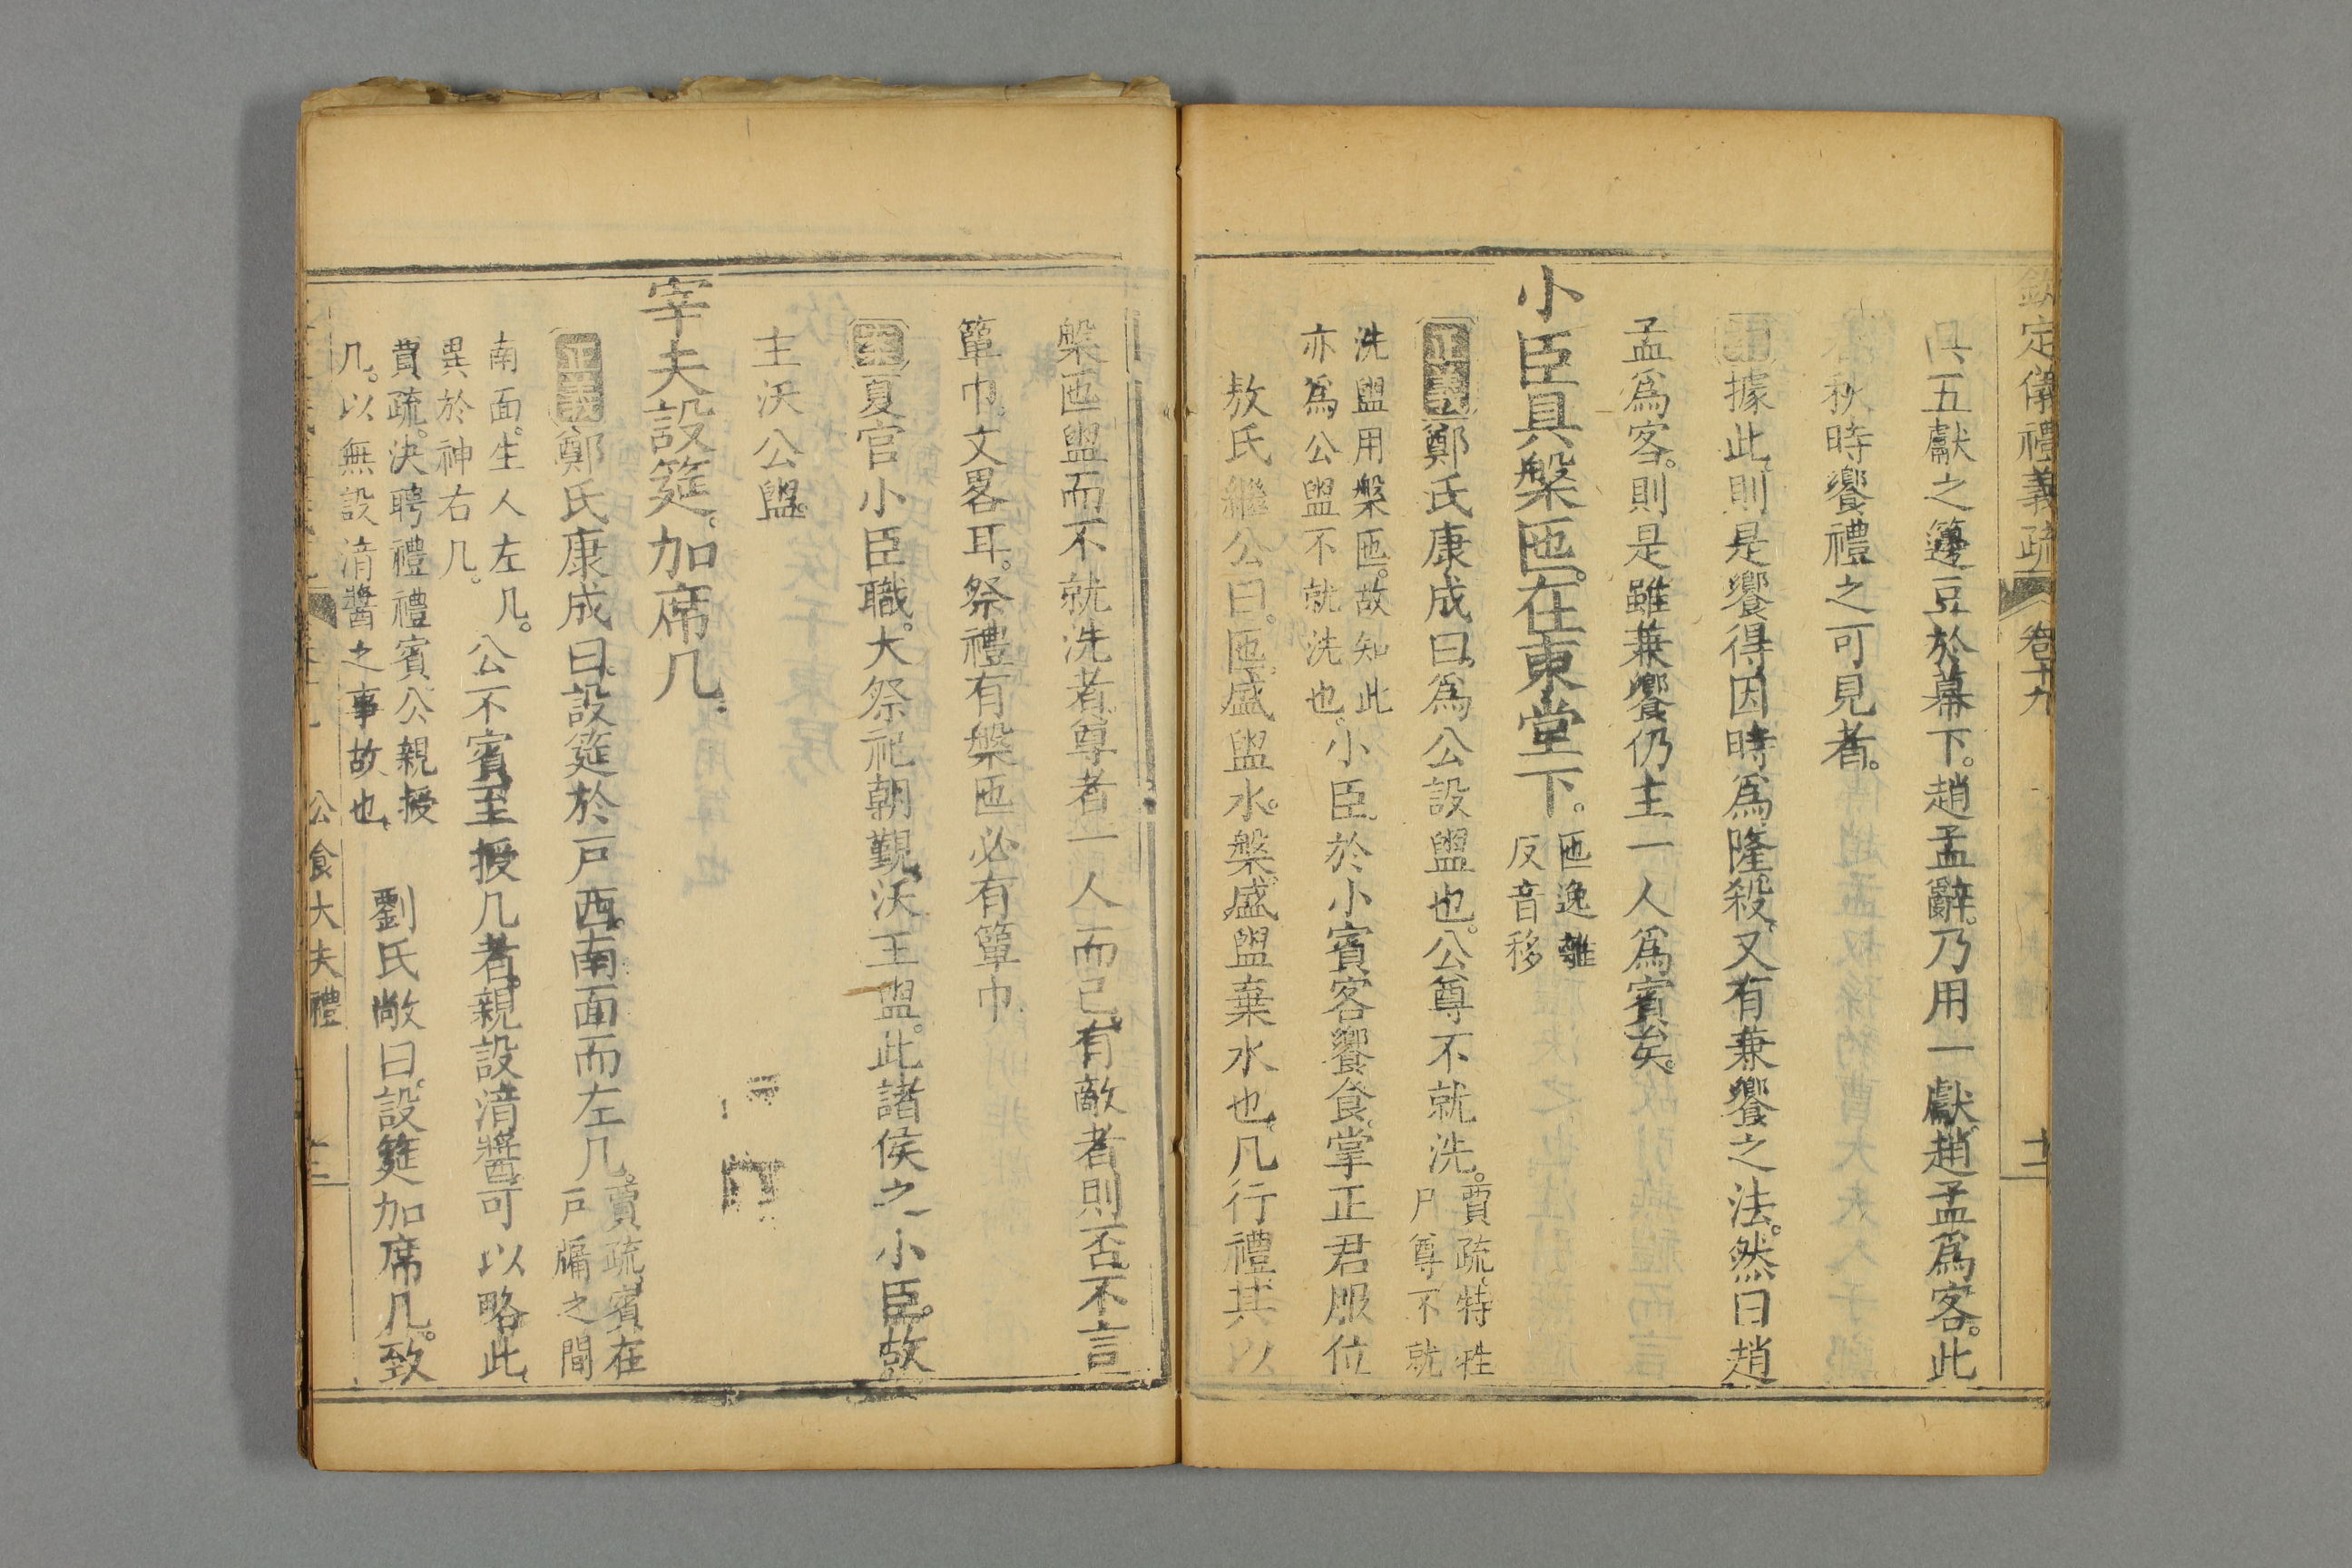 欽定儀禮義疏 卷十九 十二
具五獻之籩豆於幕下。趙孟辭。乃用一獻。趙孟爲客。此
春秋時饗禮之可見者。
據此則是饗得因時爲隆殺。又有兼饗之法。然曰趙
孟爲客。則是雖兼饗仍主一人爲賓矣。
小臣具槃匜。在東堂下。匜逸離
反音移
正義鄭氏康成曰。爲公設盥也。公尊不就洗。賈疏。特牲
尸尊不就
洗盥用槃匜。故知此
亦爲公盥不就洗也。小臣於小賓客饗食。掌正君服位
敖氏繼公曰。匜盛盥水。槃盛盥棄水也。凡行禮其以
槃匜盥而不就洗者。尊者一人而已。有敵者則否。不言
簞巾。文畧耳。祭禮有槃匜必有簞巾
案夏官小臣職。大祭祀朝覲。沃王盥。此諸侯之小臣。故
主沃公盥。
宰夫設筵。加席几。
正義鄭氏康成曰。設筵於戶西。南面而左几。賈疏。賓在
戶牖之間
南面。生人左几。
異於神右几。公不賓至授几者。親設湇醬可以略此。
賈疏。決聘禮禮賓公親授
几。以無設湇醬之事故也。劉氏敞曰。設筵加席几。致
公食大夫禮